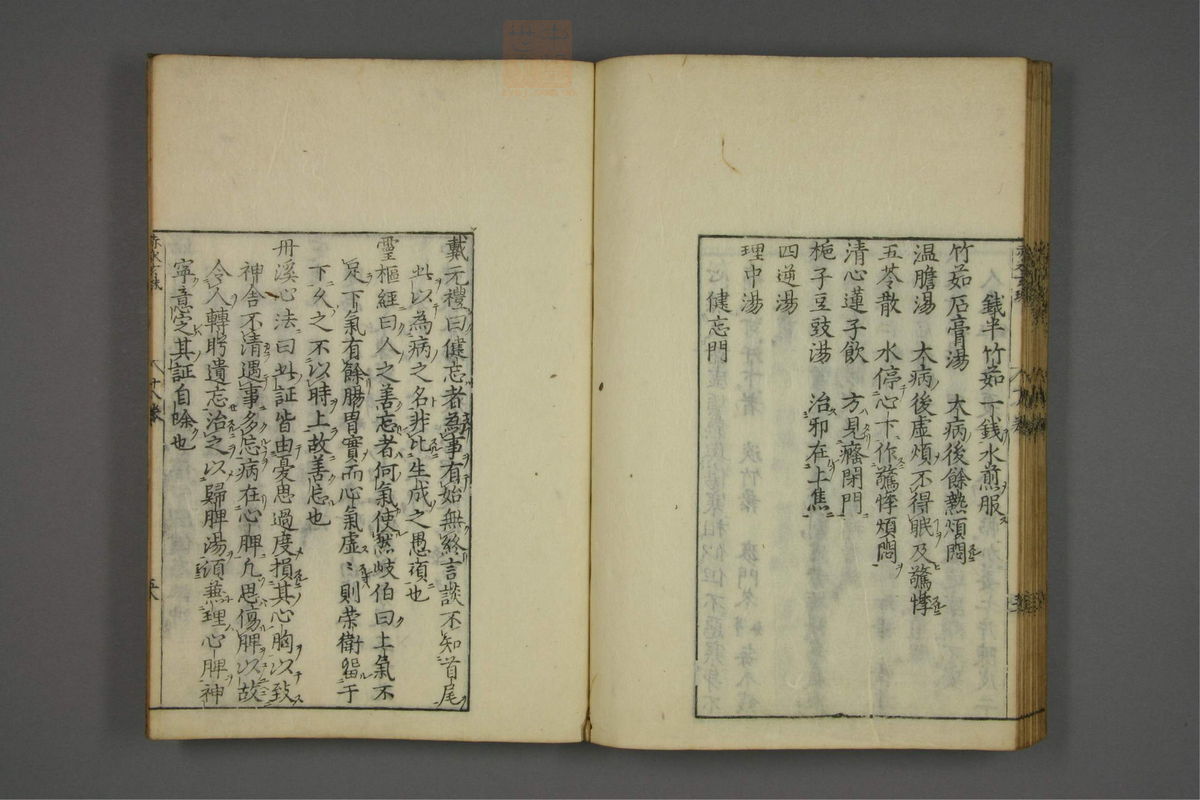 錢半竹茹一錢水煎服
竹茹石膏湯　大病後餘熱煩悶
温膽湯　大病後虚煩不得眠及驚悸
五苓散　水停心下作驚悸煩悶
清心蓮子飲　方見癃閉門
梔子豆豉湯　治邪在上焦
四逆湯
理中湯
健忘門
戴元禮曰健忘者為事有始無終言談不知首尾
此以為病之名非比生成之愚頑也
靈樞經曰人之善忘者何氣使然岐伯曰上氣不
足下氣有餘腸胃實而心氣虚〻則荣衛留于
下久之不以時上故善忘也
丹溪心法曰此証皆由憂思過度損其心胸以致
神舎不清遇事多忘病在心脾凢思傷脾以故
令人轉盻遺忘治之以歸脾湯須兼理心脾神
寧意定其証自除也